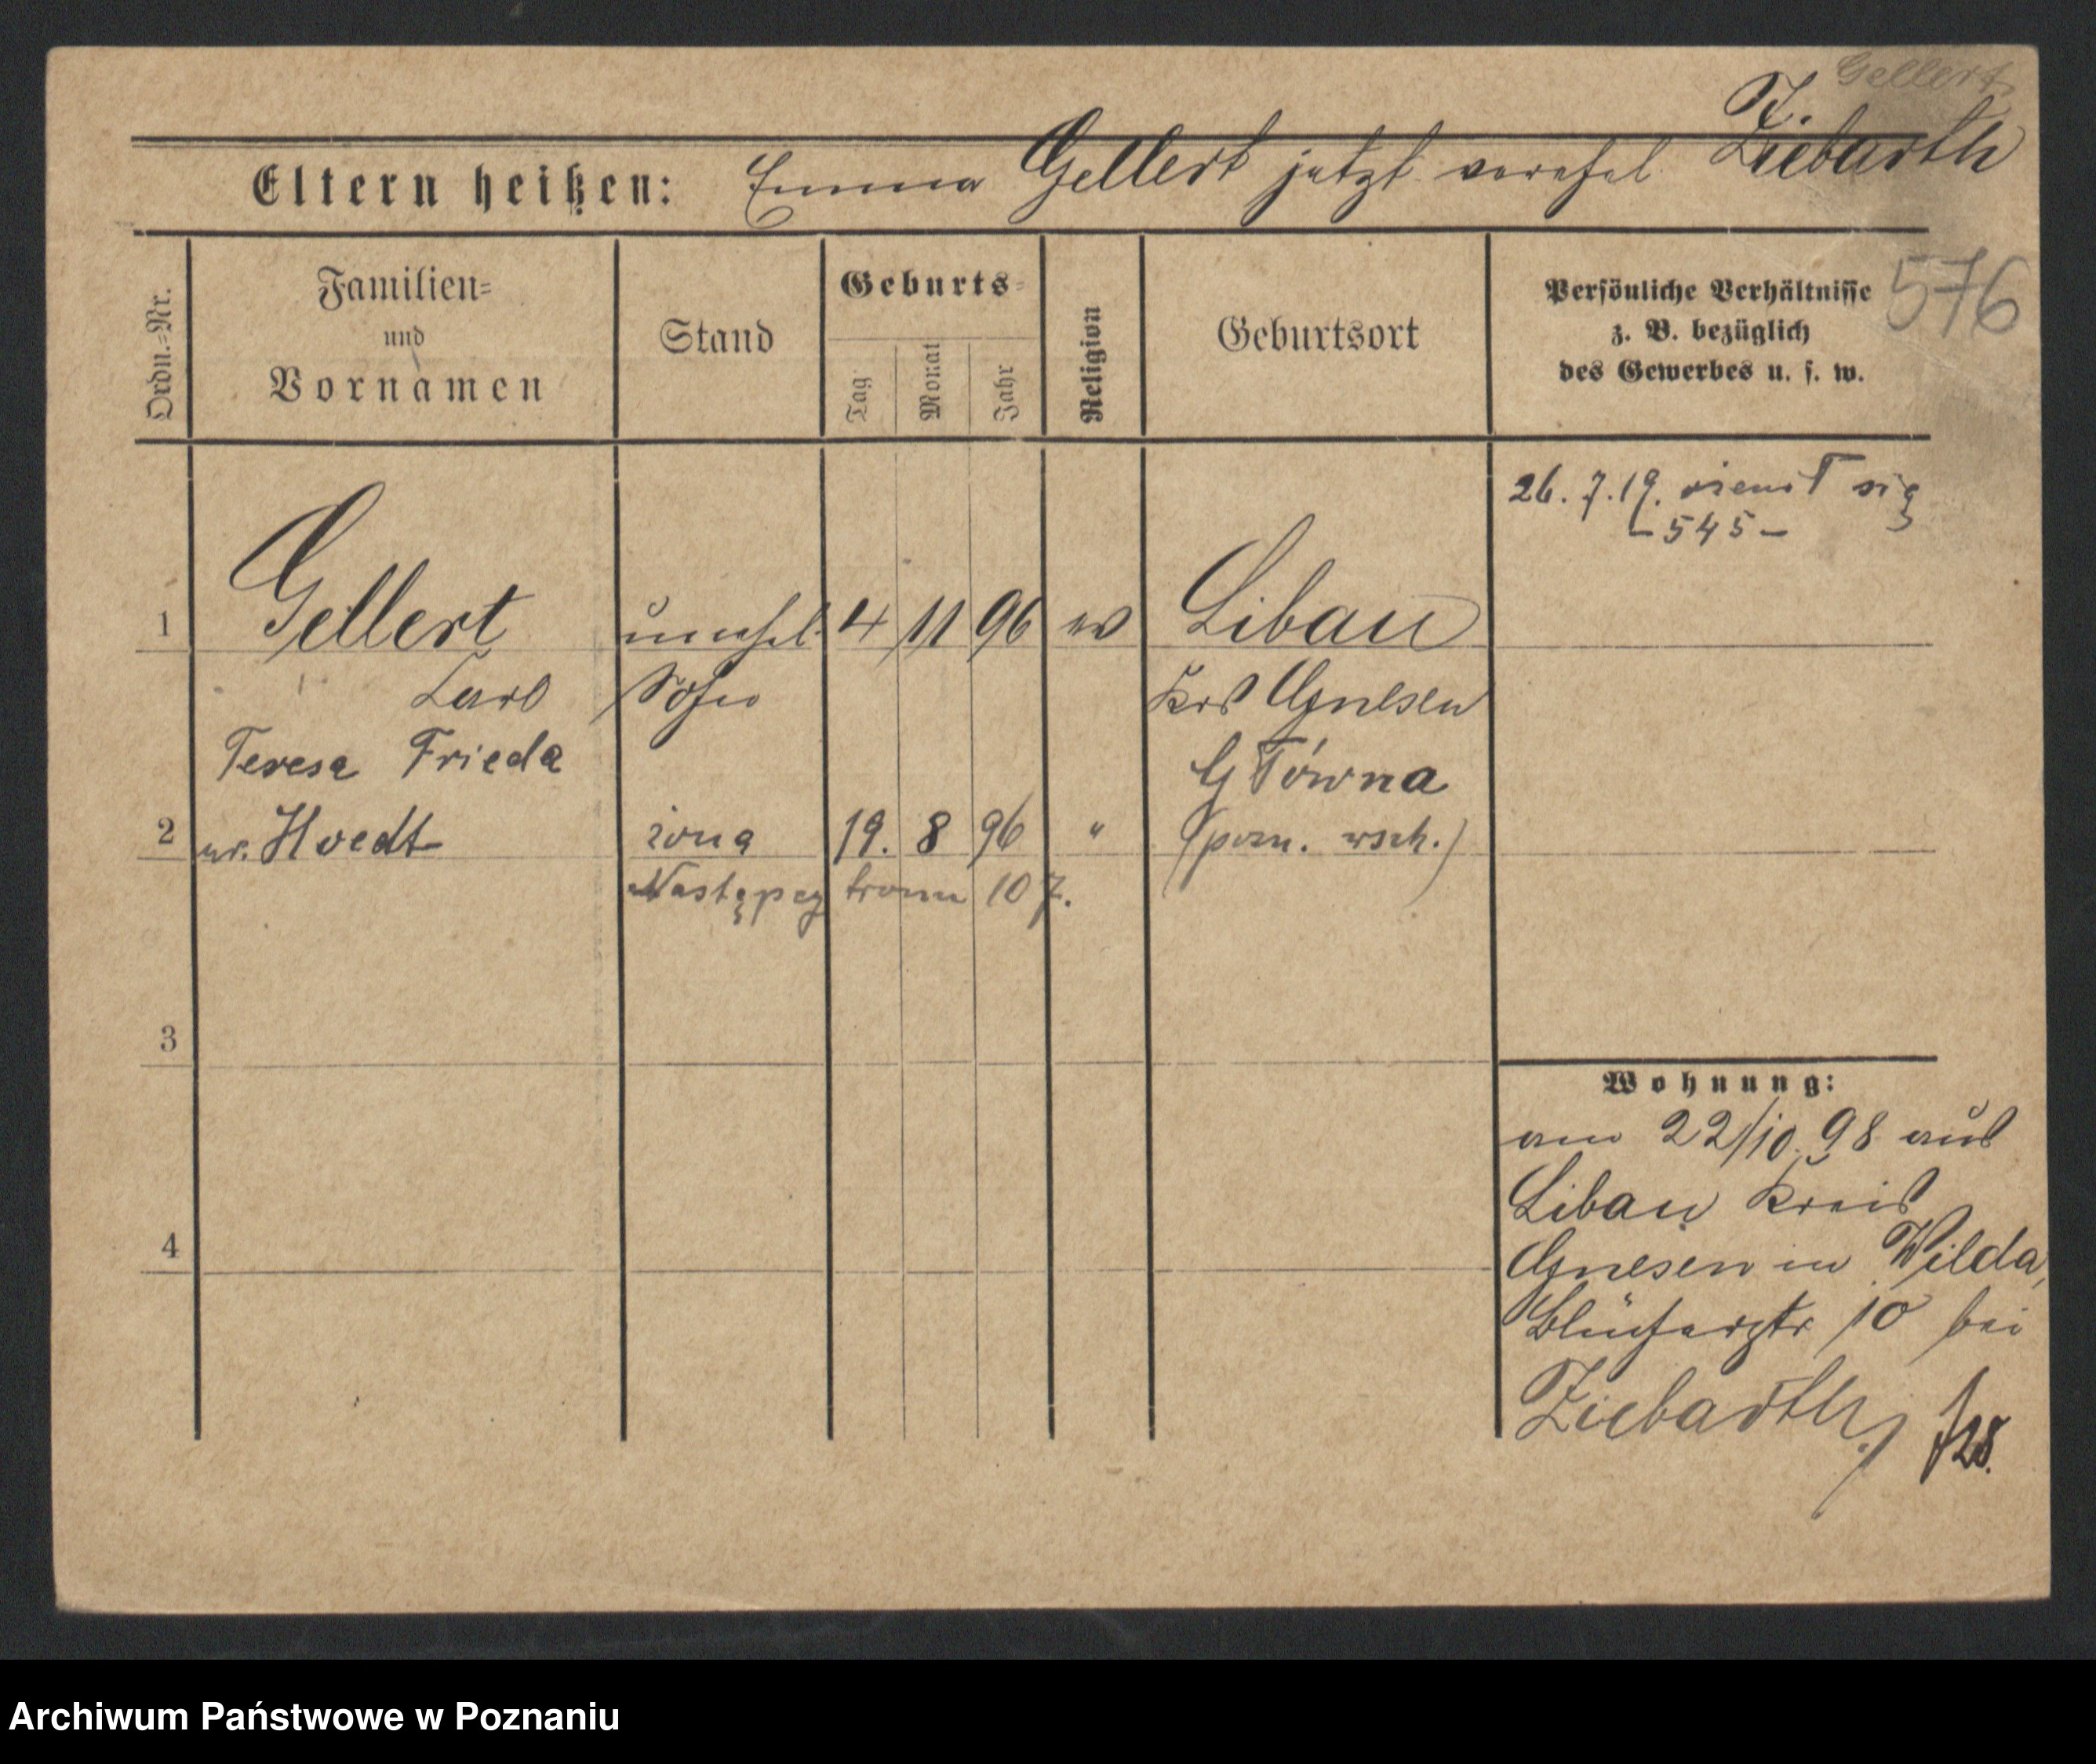 Gellert
Z.
Eltern heißen: Emma Gellert jetzt verehel. Ziebarth
Ordn.=Nr.
Familien=
und
Vornamen
Stand
Geburts=
Tag
Monat
Jahr
Religion
Geburtsort
Persönliche Verhältnisse
z. B. bezüglich
des Gewerbes u. s. w.
576
26. 7. 19. ożenił się
- 545 -
1 Gellert unehel. 4 11 96 ev Libau
Carl Sohn Krs Gnesen
Teresa Frieda Główna
2 ur. Hoedt żona 19. 8 96 " (pozn. wsch.)
Następcy tronu 107.
3
4
Wohnung:
am 22/10. 98 aus
Libau Kreis
Gnesen in Wilda,
10 bei
Ziebarth
Archiwum Państwowe w Poznaniu